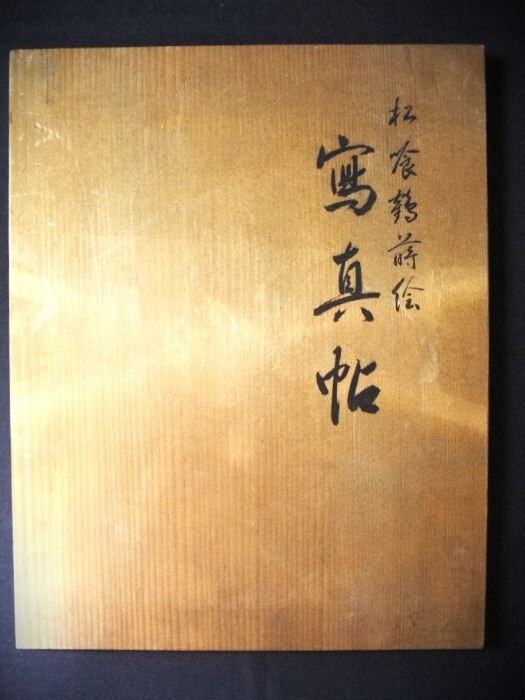 松喰鶴蒔絵
寫真帖